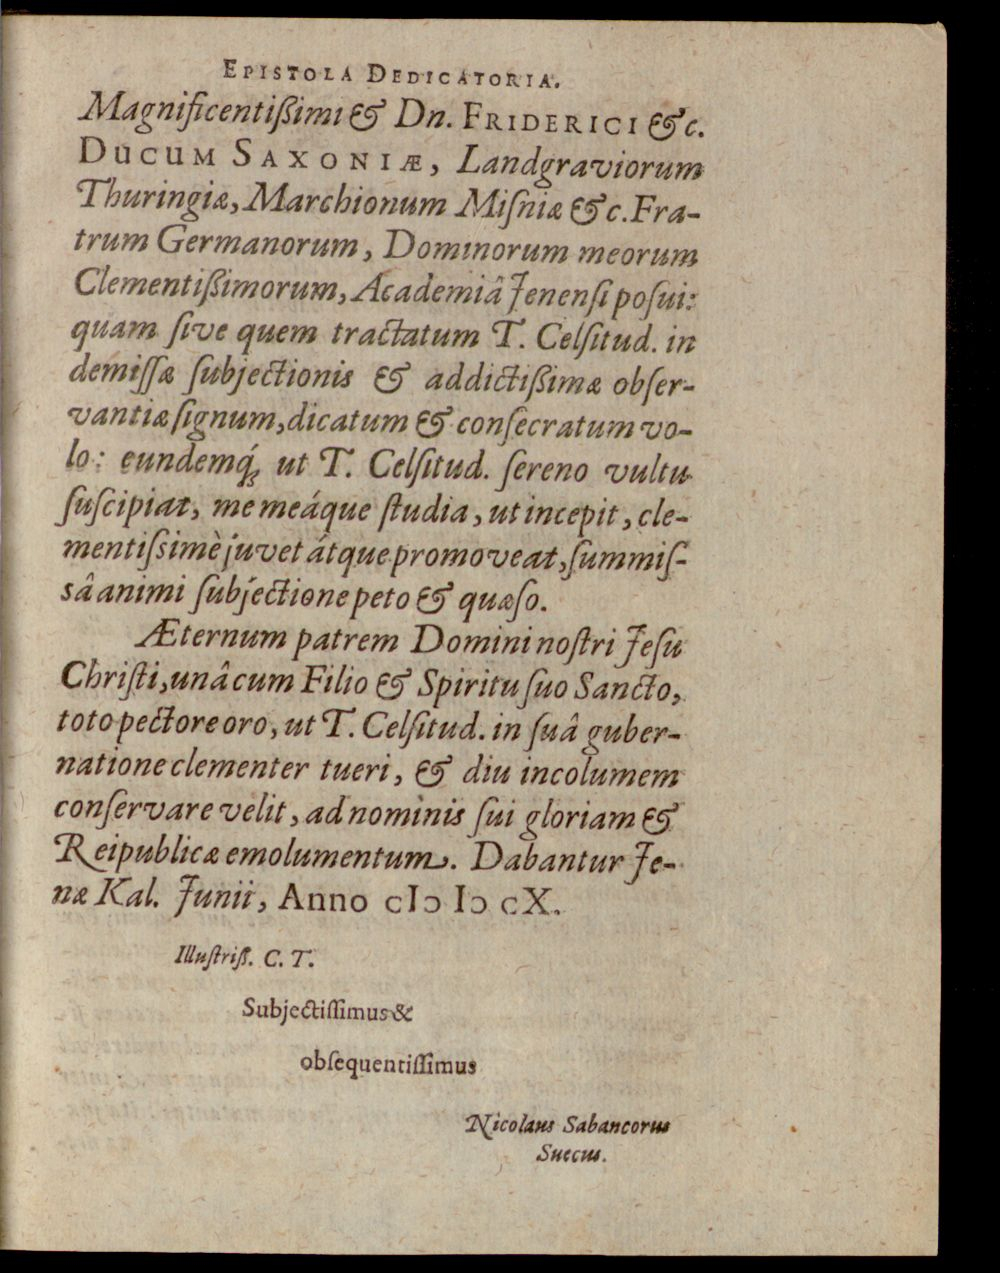 EPISTOLA DEDICATORIA.
Magnificentißimi & Dn. FRIDERICI &c.
DUCUM SAXONIÆ, Landgraviorum
Thuringiæ, Marchionum Miſniæ &c. Fra-
trum Germanorum, Dominorum meorum
Clementißimorum, Academiâ Jenenſi poſui:
quam ſive quem tractatum T. Celſitud. in
demiſſæ ſubjectionis & addictißimæ obſer-
vantiæ ſignum, dicatum & conſecratum vo-
lo: eundemq́; ut T. Celſitud. ſereno vultu
ſuſcipiat, me meáque ſtudia, ut incepit, cle-
mentiſsimè juvet átque promoveat, ſummiſ-
sâ animi ſubjectione peto & quæſo.
Æternum patrem Domini noſtri Jeſu
Chriſti, unâ cum Filio & Spiritu ſuo Sancto,
toto pectore oro, ut T. Celſitud. in ſuâ guber-
natione clementer tueri, & diu incolumem
conſervare velit, ad nominis ſui gloriam &
Reipublicæ emolumentum. Dabantur Je-
næ Kal. Junii, Anno cIɔ Iɔ cX.
Illuſtriß. C. T.
Subjectiſſimus &
obſequentiſſimus
Nicolaus Sabancorus
Suecus.